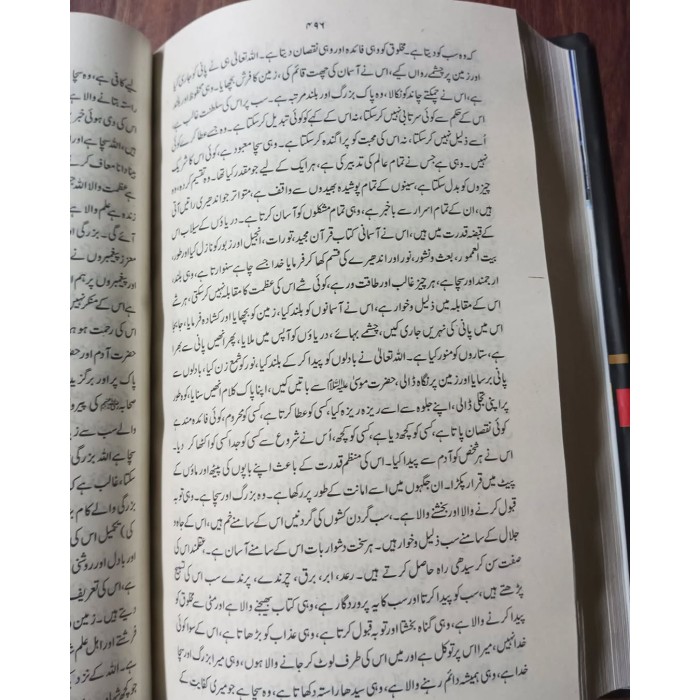 ۴۹۶
کہ وہ سب کو دیتا ہے۔ مخلوق کو وہی فائدہ اور وہی نقصان دیتا ہے۔ اللہ تعالیٰ ہی نے پانی کو جاری کیا
اور زمین پر چشمے رواں کیے، اس نے آسمان کی چھت قائم کی، زمین کا فرش بچھایا۔ وہی محفوظ اور بلند
ہے، اس نے چمکتے چاند کو نکالا، وہ پاک بزرگ اور بلند مرتبہ ہے۔ سب پر اس کی سلطنت غالب ہے
اس کے حکم سے کوئی سرتابی نہیں کر سکتا، نہ اس کے کہے کو کوئی تبدیل کر سکتا ہے۔ وہ جسے عطا کرے کوئی
اُسے ذلیل نہیں کر سکتا، نہ اس کی محبت کو پراگندہ کر سکتا ہے۔ وہی سچا معبود ہے، کوئی اس کا شریک
نہیں۔ وہی ہے جس نے تمام عالم کی تدبیر کی ہے، ہر ایک کے لیے جو مقدر کیا تھا۔ وہ تقسیم کر دیا، وہ
چیزوں کو بدل سکتا ہے، سینوں کے تمام پوشیدہ بھیدوں سے واقف ہے، متواتر جو اندھیری راتیں آتی
ہیں، ان کے تمام اسرار سے باخبر ہے، وہی تمام مشکلوں کو آسان کرتا ہے۔ دریاؤں کے سیلاب اس
کے قبضہ قدرت میں ہیں، اس نے آسمانی کتاب قرآن مجید، تورات، انجیل اور زبور کو نازل کیا اور طور،
بیت المعمور، بعث و نشور، نور اور اندھیرے کی قسم کھا کر فرمایا خدا جسے چاہے سنوارتا ہے، وہی بلند
ارجمند اور سچا ہے، ہر چیز غالب اور طاقت ور ہے، کوئی شے اس کی عظمت کا مقابلہ نہیں کر سکتی، ہر شے
اس کے مقابلہ میں ذلیل و خوار ہے، اس نے آسمانوں کو بلند کیا، زمین کو بچھایا اور کشادہ فرمایا، جابجا
اس میں پانی کی نہریں جاری کیں، چشمے بہائے، دریاؤں کو آپس میں ملایا، پھر انھیں پانی سے بھرا
ہے، ستاروں کو منور کیا ہے۔ اللہ تعالیٰ نے بادلوں کو پیدا کر کے بلند کیا، نور کو شمع زن کیا، بادلوں سے
پانی برسایا اور زمین پر نگاہ ڈالی، حضرت موسیٰ علیہ السلام سے باتیں کیں، اپنا پاک کلام انھیں سنایا، کوہ طور
پر اپنی تجلی ڈالی، اپنے جلوہ سے اسے ریزہ ریزہ کیا، کسی کو عطا کرتا ہے، کسی کو محروم، کوئی فائدہ مند ہے
کوئی نقصان پاتا ہے، کسی کو کچھ دیا ہے، کسی کو کچھ، اُس نے شروع سے کسی کو جدا کسی کو اکٹھا کر دیا۔
اس نے ہر شخص کو آدم سے پیدا کیا۔ اس کی منظم قدرت کے باعث اپنے باپوں کی پیٹھ اور ماؤں کے
پیٹ میں قرار پکڑا۔ ان جگہوں میں اسے امانت کے طور پر رکھا ہے۔ وہ بزرگ اور سچا ہے۔ وہی توبہ
قبول کرنے والا اور بخشنے والا ہے۔ سب گردن کشوں کی گردنیں اس کے سامنے خم ہیں، اس کے جاہ و
جلال کے سامنے سب ذلیل و خوار ہیں۔ ہر سخت دشوار بات اس کے سامنے آسان ہے۔ عقلمند اس کی
صفت سن کر سیدھی راہ حاصل کرتے ہیں۔ رعد، ابر، برق، چرندے، پرندے سب اس کی تسبیح
پڑھتے ہیں، سب کو پیدا کرتا اور سب کا یہ پروردگار ہے، وہی کتاب بھیجنے والا ہے اور مٹی سے مخلوق کو
پیدا کرنے والا ہے، وہی گناہ بخشتا اور توبہ قبول کرتا ہے، وہی عذاب کو بڑھاتا ہے، اس کے سوا کوئی
خدا نہیں، میرا اس پر توکل ہے اور میں اس کی طرف لوٹ کر جانے والا ہوں، وہی میرا بزرگ اور سچا
خدا ہے، وہی ہمیشہ دائم رہنے والا ہے، وہی سیدھا راستہ دکھاتا ہے، وہ سچا ہے جو میری کفایت کے
لیے کافی ہے، وہ سچا
راستہ بتانے والا ہے
اس کی دی ہوئی خبر
ہیں، اللہ سچا ہے اور
بینا و دانا معاف کرنے
ہے عظمت والا اللہ جس
زندہ ہے علم والا ہے
آئے گی۔ بزرگی اور
معزز پیغمبروں نے
اور پیغمبروں پر ہم ا
ہے اس کے منکر نہیں
اس کی رحمت ہو ہم
حضرت آدم اور حضر
پاک پر اور برگزید
صحابہ کی پیرو
والے سب سے زیا
سچا ہے اللہ بزرگی
سکتا، غالب ہے ک
بزرگی والے کام پر
کی) تخیل اس کی
اور بادل اور روشنی
ہے، اس کی تعریف
دیتے ہیں۔ زمین
فرشتے اور اہل علم ش
ہے۔ اللہ کے نزد
جو کچھ